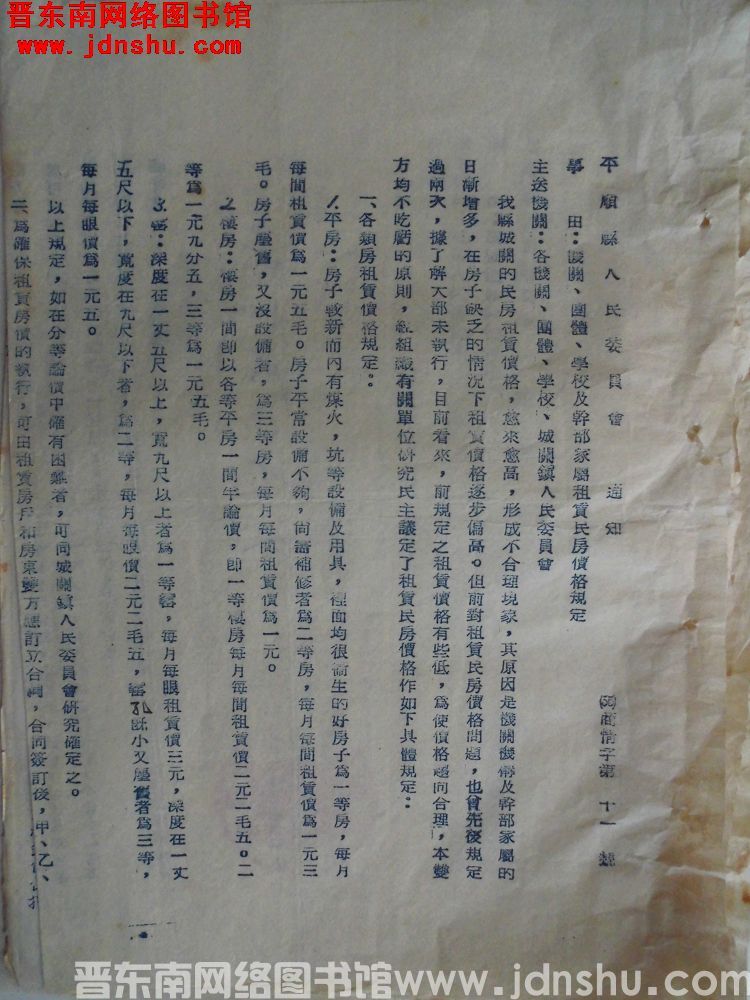 晋东南网络图书馆
www.jdnshu.com
平順縣人民委員會 通知
商情字第 十一 號
事 由：機關、團體、學校及幹部家屬租賃民房價格規定
主送機關：各機關、團體、學校、城關鎮人民委員會
我縣城關的民房租賃價格，愈來愈高，形成不合理現象，其原因是機關機構及幹部家屬的
日漸增多，在房子缺乏的情况下租賃價格逐步偏高。但前對租賃民房價格問題，也曾先後規定
過兩次，據了解大部未執行，目前看來，前規定之租賃價格有些低，為使價格趨向合理，本雙
方均不吃虧的原則，經組織有關單位研究民主議定了租賃民房價格作如下具體規定：
一、各類房租賃價格規定：
1.平房：房子較新而內有煤火，坑等設備及用具，裡面均很衛生的好房子為一等房，每月
每間租賃價為一元五毛。房子平常設備不夠，尚需補修者為二等房，每月每間租賃價為一元三
毛。房子塵舊，又沒設備者，為三等房，每月每間租賃價為一元。
2.樓房：樓房一間即以各等平房一間半論價，即一等樓房每月每間租賃價二元二毛五。二
等為一元九分五，三等為一元五毛。
3.窰：深度在一丈五尺以上，寬九尺以上者為一等窰，每月每眼租賃價三元，深度在一丈
五尺以下，寬度在九尺以下者，為二等，每月每眼價二元二毛五，窰孔既小又塵舊者為三等，
每月每眼價為一元五。
以上規定，如在分等論價中確有困難者，可同城關鎮人民委員會研究確定之。
二、為確保租賃房價的執行，可由租賃房戶和房東雙方應訂立合同，合同簽訂後，甲、乙、
晋东南网络图书馆www.jdnshu.com